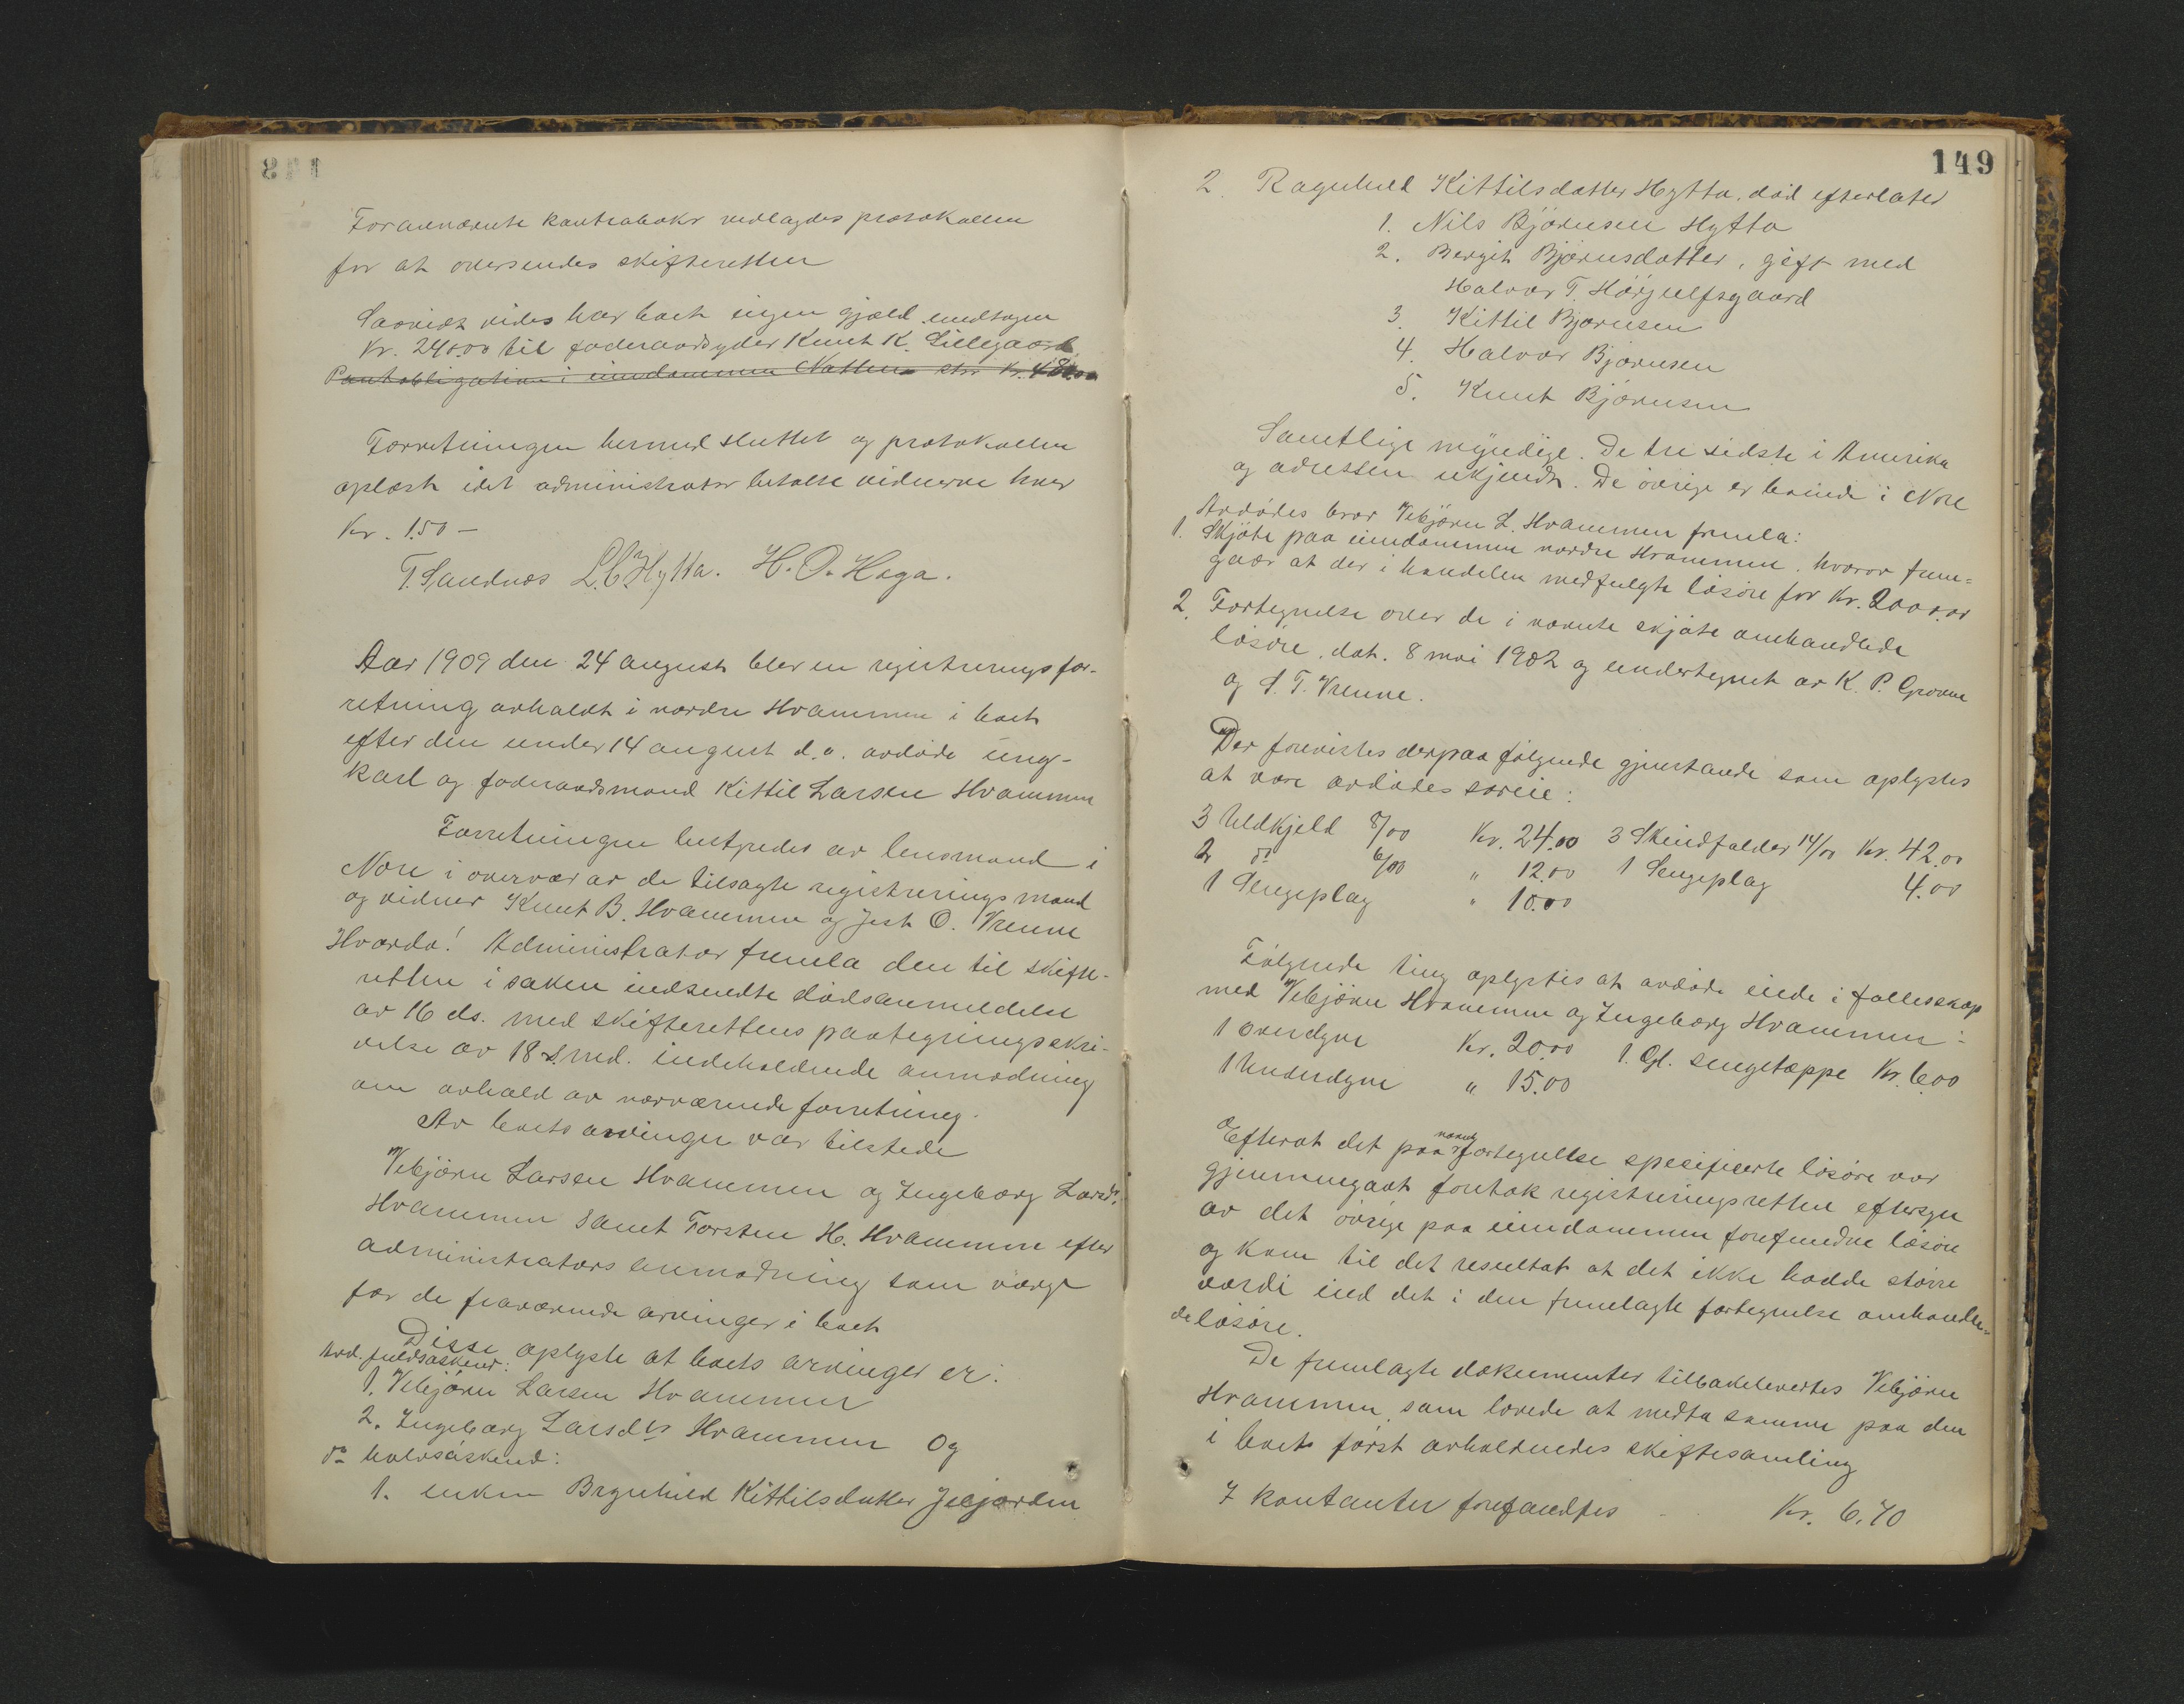 Foranævnte kontrabøker vedlagdes protokollen
for at oversendes skifteretten
Saavidt vides har boet ingen gjæld undtagen
Kr. 240.00 til føderaadsyder Knut K. Lillegaard
Pantobligation i eiendommen Natten stor Kr.
Forretningen hermed sluttet og protokollen
oplæst idet administrator betalte vidnerne hver
Kr. 1.50 –
T. Sandnæs L. C. Hytta. H. O. Haga.
Aar 1909 den 24 august blev en registreringsfor-
retning avholdt i nordre Hvammen i boet
efter den under 14 august d.a. avdøde ung-
karl og føderaadsmand Kittil Larsen Hvammen
Forretningen bestyredes av lensmand i
Nore i overvær av de tilsagte registreringsmænd
og vidner Knut B. Hvammen og Jest O. Vrenne
Hvorda! Administrator fremla den til skifte-
retten i saken indsendte dødsanmeldelse
av 16 ds. med skifterettens paategningsskri-
velse av 18 s. md. indeholdende anmodning
om avhold av nærværende forretning.
Av boets arvinger var tilstede
Vebjørn Larsen Hvammen og Ingeborg Larsdr.
Hvammen samt Torsten H. Hvammen efter
administrators anmodning som værge
for de fraværende arvinger i boet
Disse oplyste at boets arvinger er:
Avd. fuldsøskend:
1. Vebjørn Larsen Hvammen
2. Ingeborg Larsdtr Hvammen og
do halvsøskend:
1. enken Brynhild Kittilsdatter
149
2. Ragnhild Kittilsdatter Hytta, død efterlater
1. Nils Bjørnsen Hytta
2. Bergit Bjørnsdatter, gift med
Halvor T. Hørgulfsgaard
3. Kittil Bjørnsen
4. Halvor Bjørnsen
5. Knut Bjørnsen
Samtlige myndige. De tre sidste i Amerika
og adressen ukjendt. De øvrige er boende i Nore
Avdødes bror Vebjørn L. Hvammen fremla:
1. Skjøte paa eiendommen nordre Hvammen, hvorav frem-
gaar at der i handelen medfulgte løsøre for Kr. 200.00
2. Fortegnelse over de i nævnte skjøte omhandlede
løsøre, dat. 8 mai 1902 og undertegnet av K. P. Grovne
og S. T. Vrenne.
Der forevistes derpaa følgende gjenstande som oplystes
at være avdødes særeie:
3 Uldkjeld 8/00 Kr. 24.00 3 Skindfelder 14/00 Kr. 42.00
2 do 6/00 " 12.00 1 Sengeplag 4.00
1 Sengeplag " 10.00
Følgende ting oplystes at avdøde eiede i fællesskap
med Vebjørn Hvammen og Ingeborg Hvammen:
1 Overdyne Kr. 20.00 1. Gl. sengetæppe Kr. 6.00
1 Underdyne " 15.00
Efterat det paa nævnte fortegnelse specificerte løsøre var
gjennemgaat foretok registreringsretten eftersyn
av det øvrige paa eiendommen forefundne løsøre
og kom til det resultat at det ikke hadde større
værdi end det i den fremlagte fortegnelse omhandle-
de løsøre.
De fremlagte dokumenter tilbakeleverte Vebjørn
Hvammen, som lovede at medta samme paa den
i boet først avholdendes skiftesamling
I kontanter forefandtes Kr. 6.70